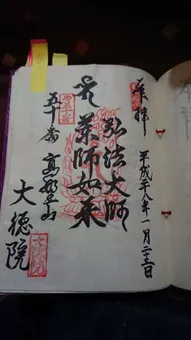 奉拝
平成 八年一月 日
弘法大師
薬師如来
五十番 高野山
大徳院